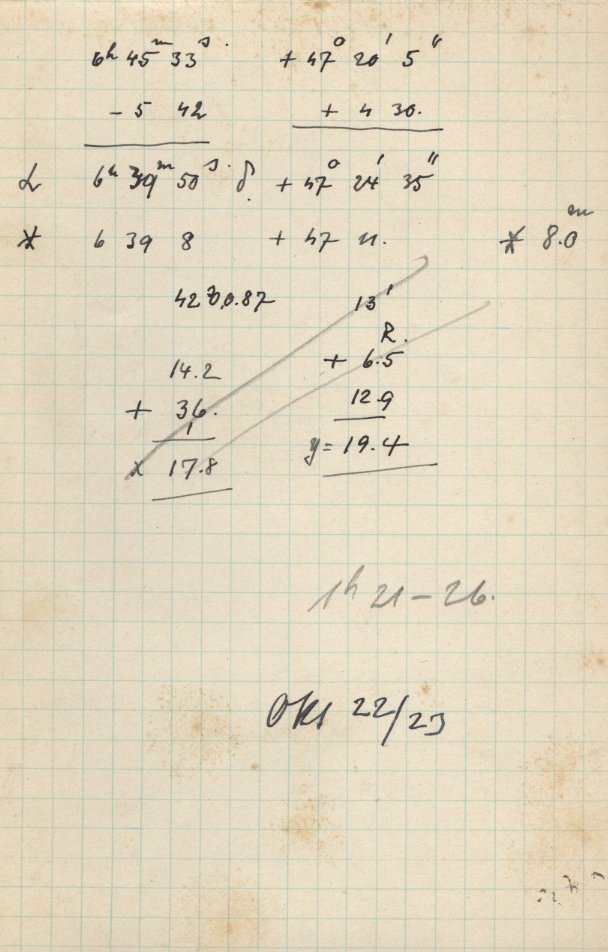 6h 45m 33s. + 47° 20' 5"
- 5 42 + 4 30.
α 6h 39m 50s. δ + 47° 24' 35"
* 6 39 8 + 47 11. * 8.0m
13'
R.
14.2 + 6.5
+ 36. 12.9
x 17.8 y = 19.4
1h 21 - 26.
Okt 22/23